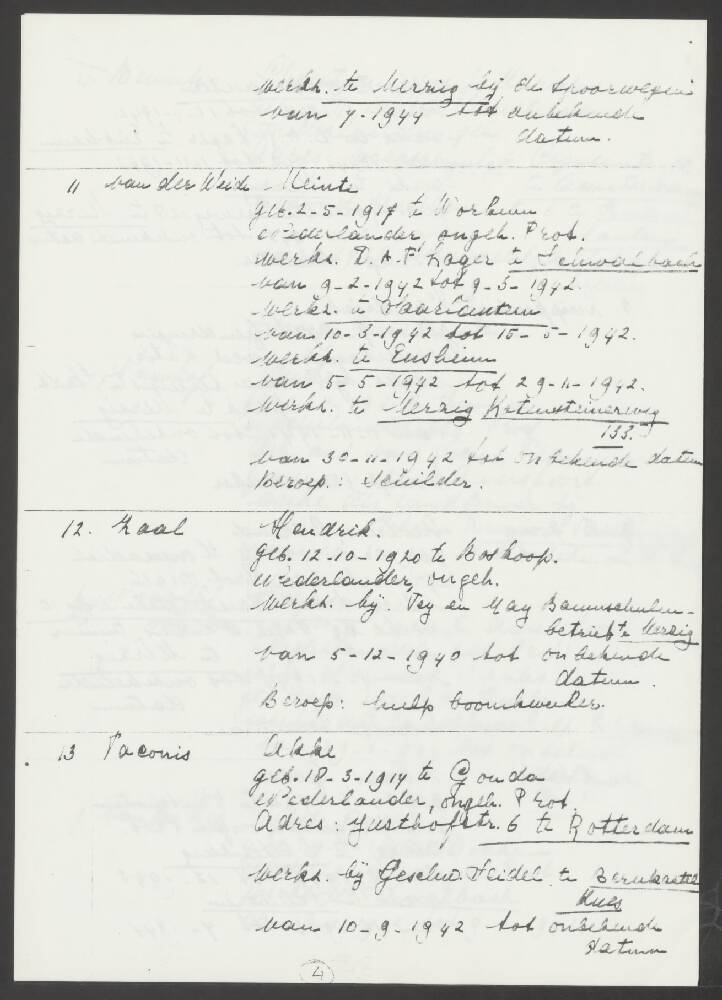 werkz. te Merzig bij de Spoorwegen
van 7-1944 tot onbekende
datum.
11 van der Weide Meinte
geb. 2-5-1917 te Workum
Nederlander, ongeh. Prot.
werkz. D.A.F. Lager te Schwalbach
van 9-2-1942 tot 9-3-1942.
werkz. te Saarlautern
van 10-3-1942 tot 15-5-1942.
werkz. te Ensheim
van 5-5-1942 tot 29-11-1942.
werkz. te Merzig
133.
van 30-11-1942 tot onbekende datum
Beroep.: Schilder.
12. Zaal Hendrik.
geb. 12-10-1920 te Boskoop.
Nederlander, ongeh.
werkz. bij. Tey en May Baumschulen-
betrieb te Merzig
van 5-12-1940 tot onbekende
datum.
Beroep: hulp boomkweker.
13 Taconis Ukke
geb. 18-3-1914 te Gouda
Nederlander, ongeh. Prot.
Adres: Justhofstr. 6 te Rotterdam
werkz. bij Geschw. Seidel te Bernkastel
Kues
van 10-9-1942 tot onbekende
datum
4